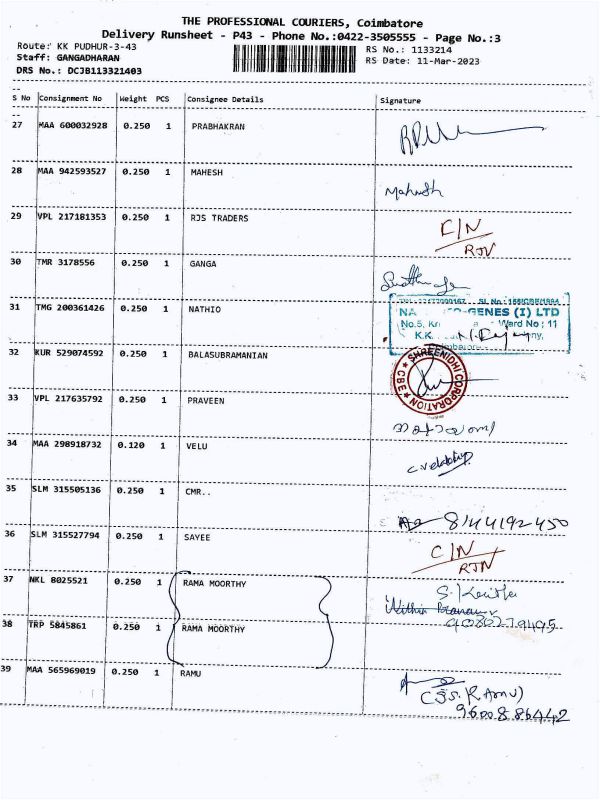 THE PROFESSIONAL COURIERS, Coimbatore
Delivery Runsheet - P43 - Phone No.:0422-3505555 - Page No.:3
Route: KK PUDHUR-3-43 RS No.: 1133214
Staff: GANGADHARAN RS Date: 11-Mar-2023
DRS No.: DCJB113321403
S No Consignment No Weight PCS Consignee Details Signature
27 MAA 600032928 0.250 1 PRABHAKRAN
28 MAA 942593527 0.250 1 MAHESH
Mahesh
29 VPL 217181353 0.250 1 RJS TRADERS
C/N
RTN
30 TMR 3178556 0.250 1 GANGA
31 TMG 200361426 0.250 1 NATHIO
NA GENES (I) LTD
No.5, Ward No : 11
K.K.
32 KUR 529074592 0.250 1 BALASUBRAMANIAN
SHREENIDHI CORPORATION
CBE
33 VPL 217635792 0.250 1 PRAVEEN
34 MAA 298918732 0.120 1 VELU
35 SLM 315505136 0.250 1 CMR..
8144192450
36 SLM 315527794 0.250 1 SAYEE
C/N
RTN
37 NKL 8025521 0.250 1 RAMA MOORTHY
38 TRP 5845861 0.250 1 RAMA MOORTHY
9080279495
39 MAA 565969019 0.250 1 RAMU
9600886442